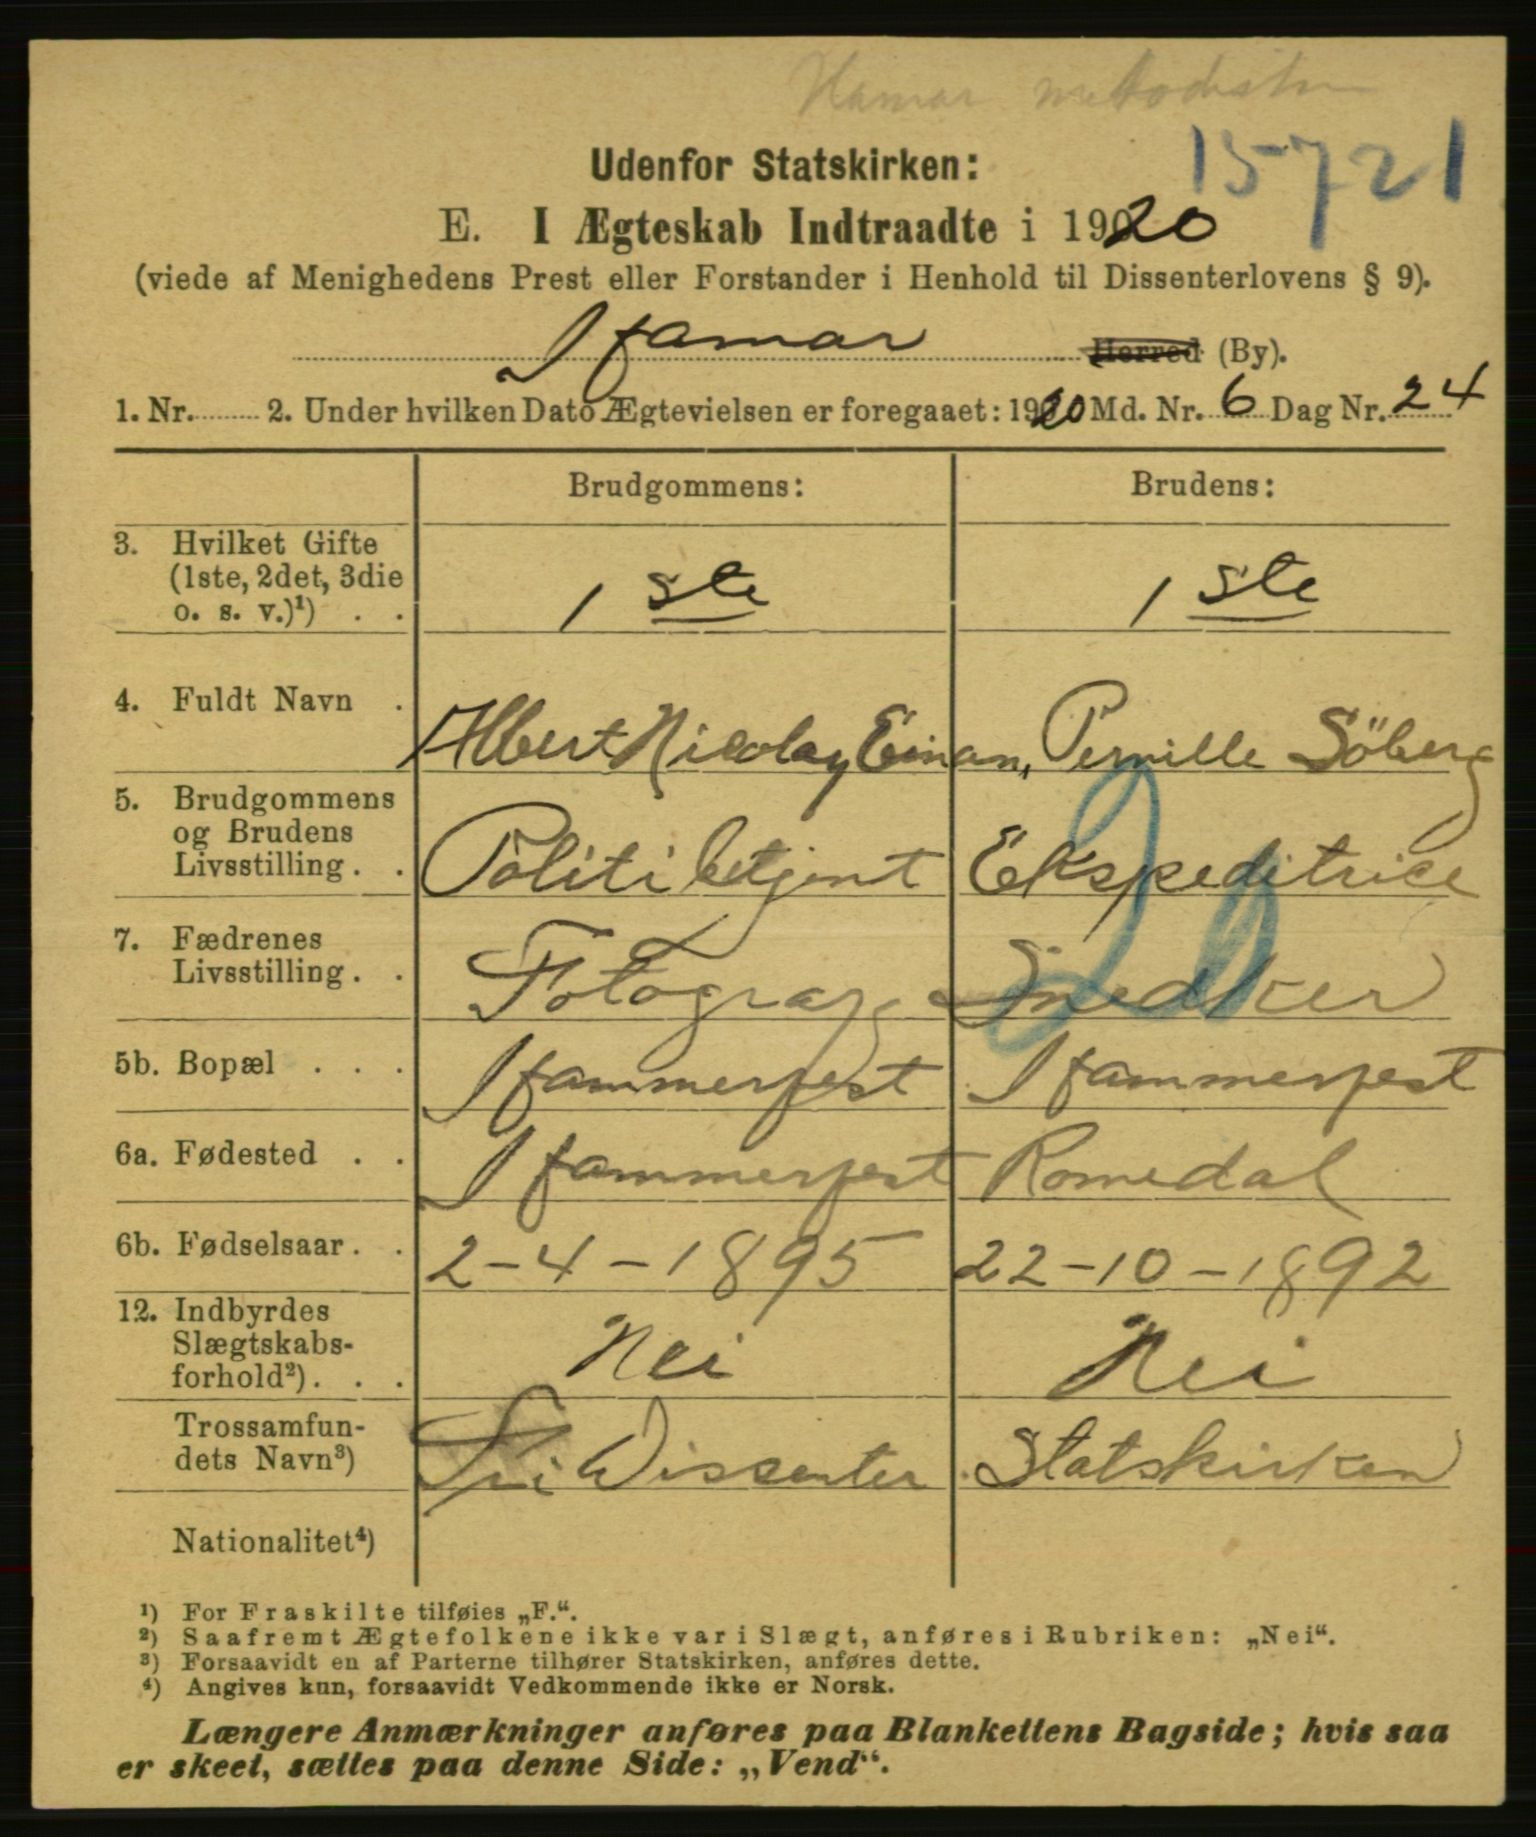 Hamar metodistm
15721
Udenfor Statskirken:
E. I Ægteskab Indtraadte i 1920
(viede af Menighedens Prest eller Forstander i Henhold til Dissenterlovens § 9).
Hamar Herred (By).
1. Nr. 2. Under hvilken Dato Ægtevielsen er foregaaet: 1920 Md. Nr. 6 Dag Nr. 24
Brudgommens: Brudens:
3. Hvilket Gifte
(1ste, 2det, 3die
o. s. v.)¹) . . 1 ste 1 ste
4. Fuldt Navn . Albert Nicolay Einan, Pernille Söberg
5. Brudgommens
og Brudens
Livsstilling . . Politibetjent Ekspeditrice
7. Fædrenes
Livsstilling . . Fotograf Snedker
5b. Bopæl . . . Hammerfest Hammerfest
6a. Fødested . . Hammerfest Romedal
6b. Fødselsaar . . 2-4-1895 22-10-1892
12. Indbyrdes
Slægtskabs-
forhold²) . . . Nei Nei
Trossamfun-
dets Navn³) Fri Dissenter Statskirken
Nationalitet⁴)
¹) For Fraskilte tilføies „F.“.
²) Saafremt Ægtefolkene ikke var i Slægt, anføres i Rubriken: „Nei“.
³) Forsaavidt en af Parterne tilhører Statskirken, anføres dette.
⁴) Angives kun, forsaavidt Vedkommende ikke er Norsk.
Længere Anmærkninger anføres paa Blankettens Bagside; hvis saa
er skeet, sættes paa denne Side: „Vend“.